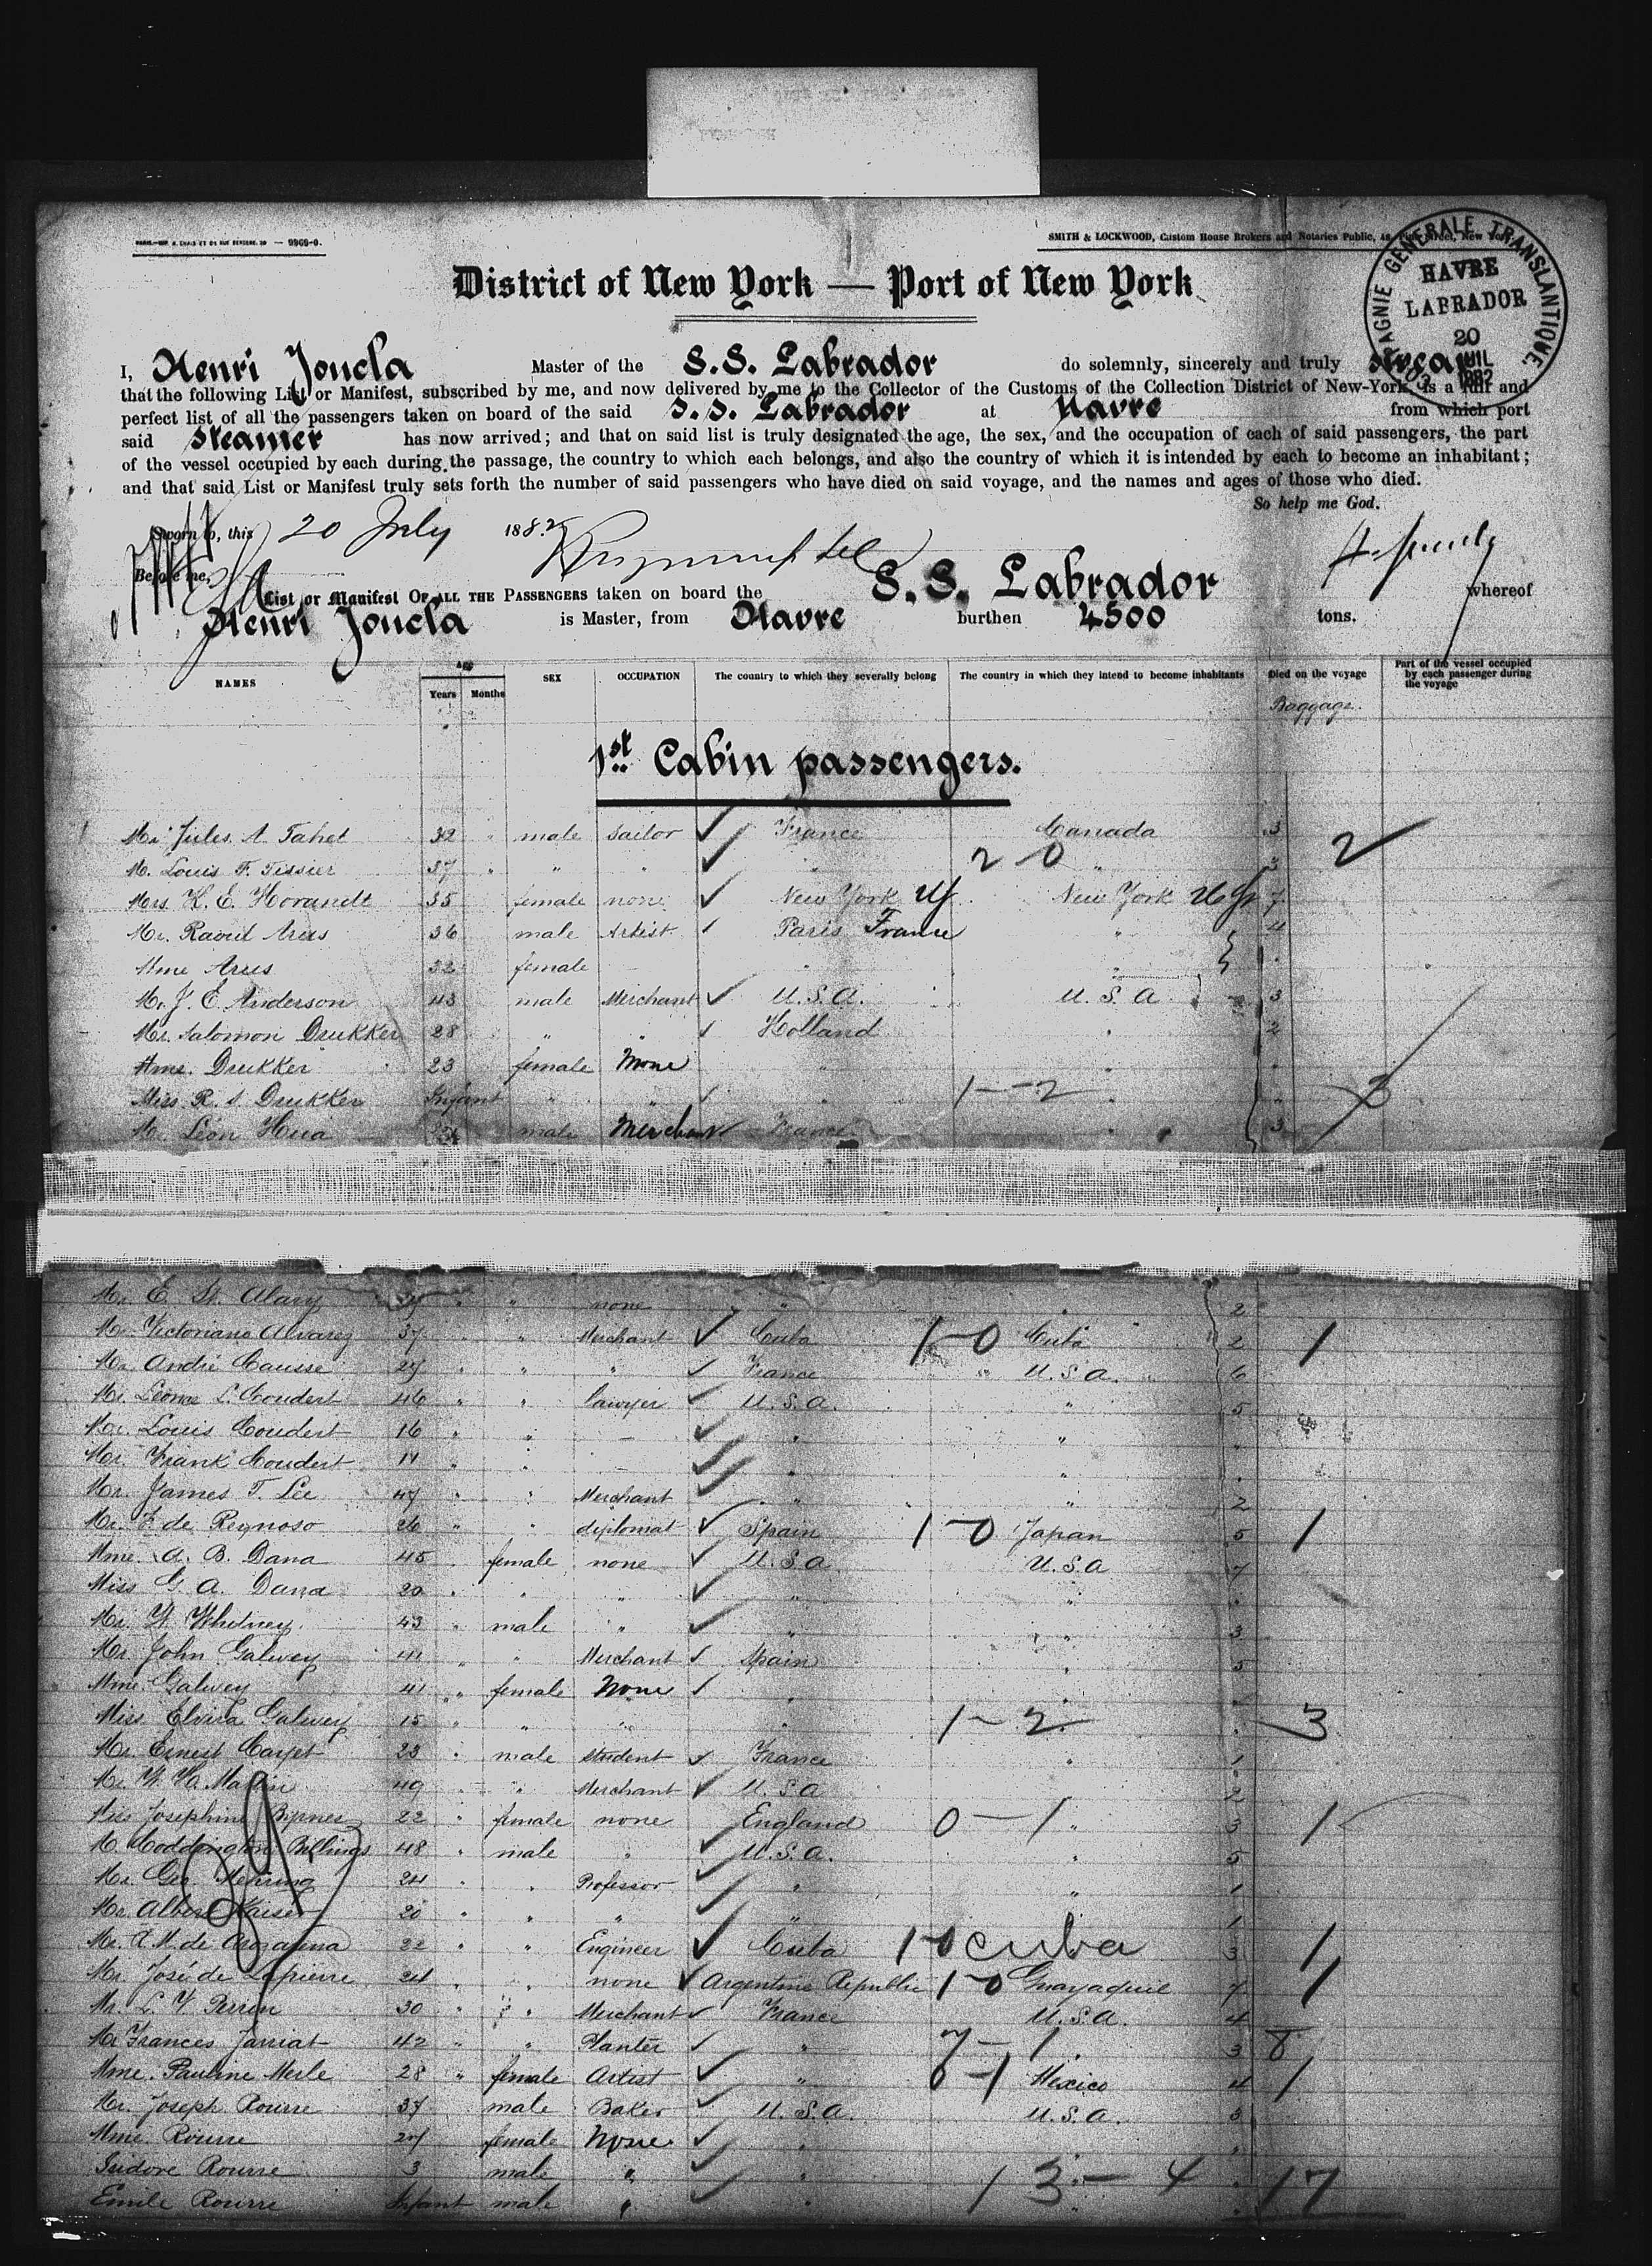 SMITH & LOCKWOOD, Custom House Brokers and Notaries Public,
COMPAGNIE GENERALE TRANSLANTIQUE
HAVRE
LABRADOR
20
JUIL
1882
District of New York — Port of New York
I, Henri Joucla Master of the S.S. Labrador do solemnly, sincerely and truly swear
that the following List or Manifest, subscribed by me, and now delivered by me to the Collector of the Customs of the Collection District of New-York, is a full and
perfect list of all the passengers taken on board of the said S.S. Labrador at Havre from which port
said steamer has now arrived; and that on said list is truly designated the age, the sex, and the occupation of each of said passengers, the part
of the vessel occupied by each during the passage, the country to which each belongs, and also the country of which it is intended by each to become an inhabitant;
and that said List or Manifest truly sets forth the number of said passengers who have died on said voyage, and the names and ages of those who died.
So help me God.
Sworn to, this 20 July 1882
Before me,
List or Manifest OF ALL THE PASSENGERS taken on board the S.S. Labrador whereof
Henri Joucla is Master, from Havre burthen 4500 tons.
NAMES Age Years Months SEX OCCUPATION The country to which they severally belong The country in which they intend to become inhabitants Died on the voyage Part of the vessel occupied by each passenger during the voyage
Baggage.
1st Cabin passengers.
Mr Jules A. Tahet 32 " male Sailor France Canada 3 2
M. Louis F. Tissier 37 " " " " 2-0 " 3
Mrs K. E. Horandt 35 female none New York US New York US 7
Mr. Raoul Arus 36 male Artist Paris France " 4
Mme Arus 32 female - " " "
Mr J. E. Anderson 43 male Merchant U.S.A. U.S.A 3
Mr. Salomon Drukker 28 " " Holland " 2
Mme. Drukker 23 female None " " "
Miss R. S. Drukker Infant " " " 1-2 " " 3
Mr. Léon Hua male Merchant France " 3
Mr. E. St. Alary " " none " " 2
Mr. Victoriano Alvarez 37 " " Merchant Cuba 1-0 Cuba 2 1
Mr. André Causse 27 " " " France U.S.A. 6
Mr. Léonce L. Coudert 46 " " Lawyer U.S.A. " 5
Mr. Louis Coudert 16 " " - " " "
Mr. Frank Coudert 11 " " - " " "
Mr. James T. Lee 47 " " Merchant " " 2
Mr. F. de Reynoso 26 " " diplomat Spain 1-0 Japan 5 1
Mme. A. B. Dana 45 " female none U.S.A U.S.A 7
Miss G. A. Dana 20 " " " " " "
Mr. W. Whitney 43 " male " " " 3
Mr. John Galwey 44 " " Merchant Spain " 5
Mme. Galwey 41 " female None " " "
Miss Elvira Galwey 15 " " " " 1-2 " 3
Mr. Ernest Carpet 23 " male student France " 1
Mr. W. H. Martin 49 " " Merchant U.S.A " 2
Miss Josephine Byrnes 22 " female none England 0-1 " 3 1
M. Coddington Billings 48 " male " U.S.A. " 5
Mr. Geo. Mehring 24 " " Professor " " 1
Mr. Albert Kaiser 20 " " " " " 1
Mr. A. M. de Arozarena 22 " " Engineer Cuba 1-0 Cuba 3 1
Mr. José de Lapierre 24 " " none Argentine Republic 1-0 Guayaquil 7 1
Mr. L. F. Perrin 30 " " Merchant France U.S.A. 4
Mr Frances Jarriat 42 " " Planter " 7-1 " 3 8
Mme. Pauline Merle 28 " female Artist " 0-1 Mexico 4 1
Mr. Joseph Rourre 37 male Baker U.S.A. U.S.A. 3
Mme. Rourre 27 female None " " "
Isidore Rourre 3 male " " " "
Emile Rourre Infant male " " 13-4 " " 17